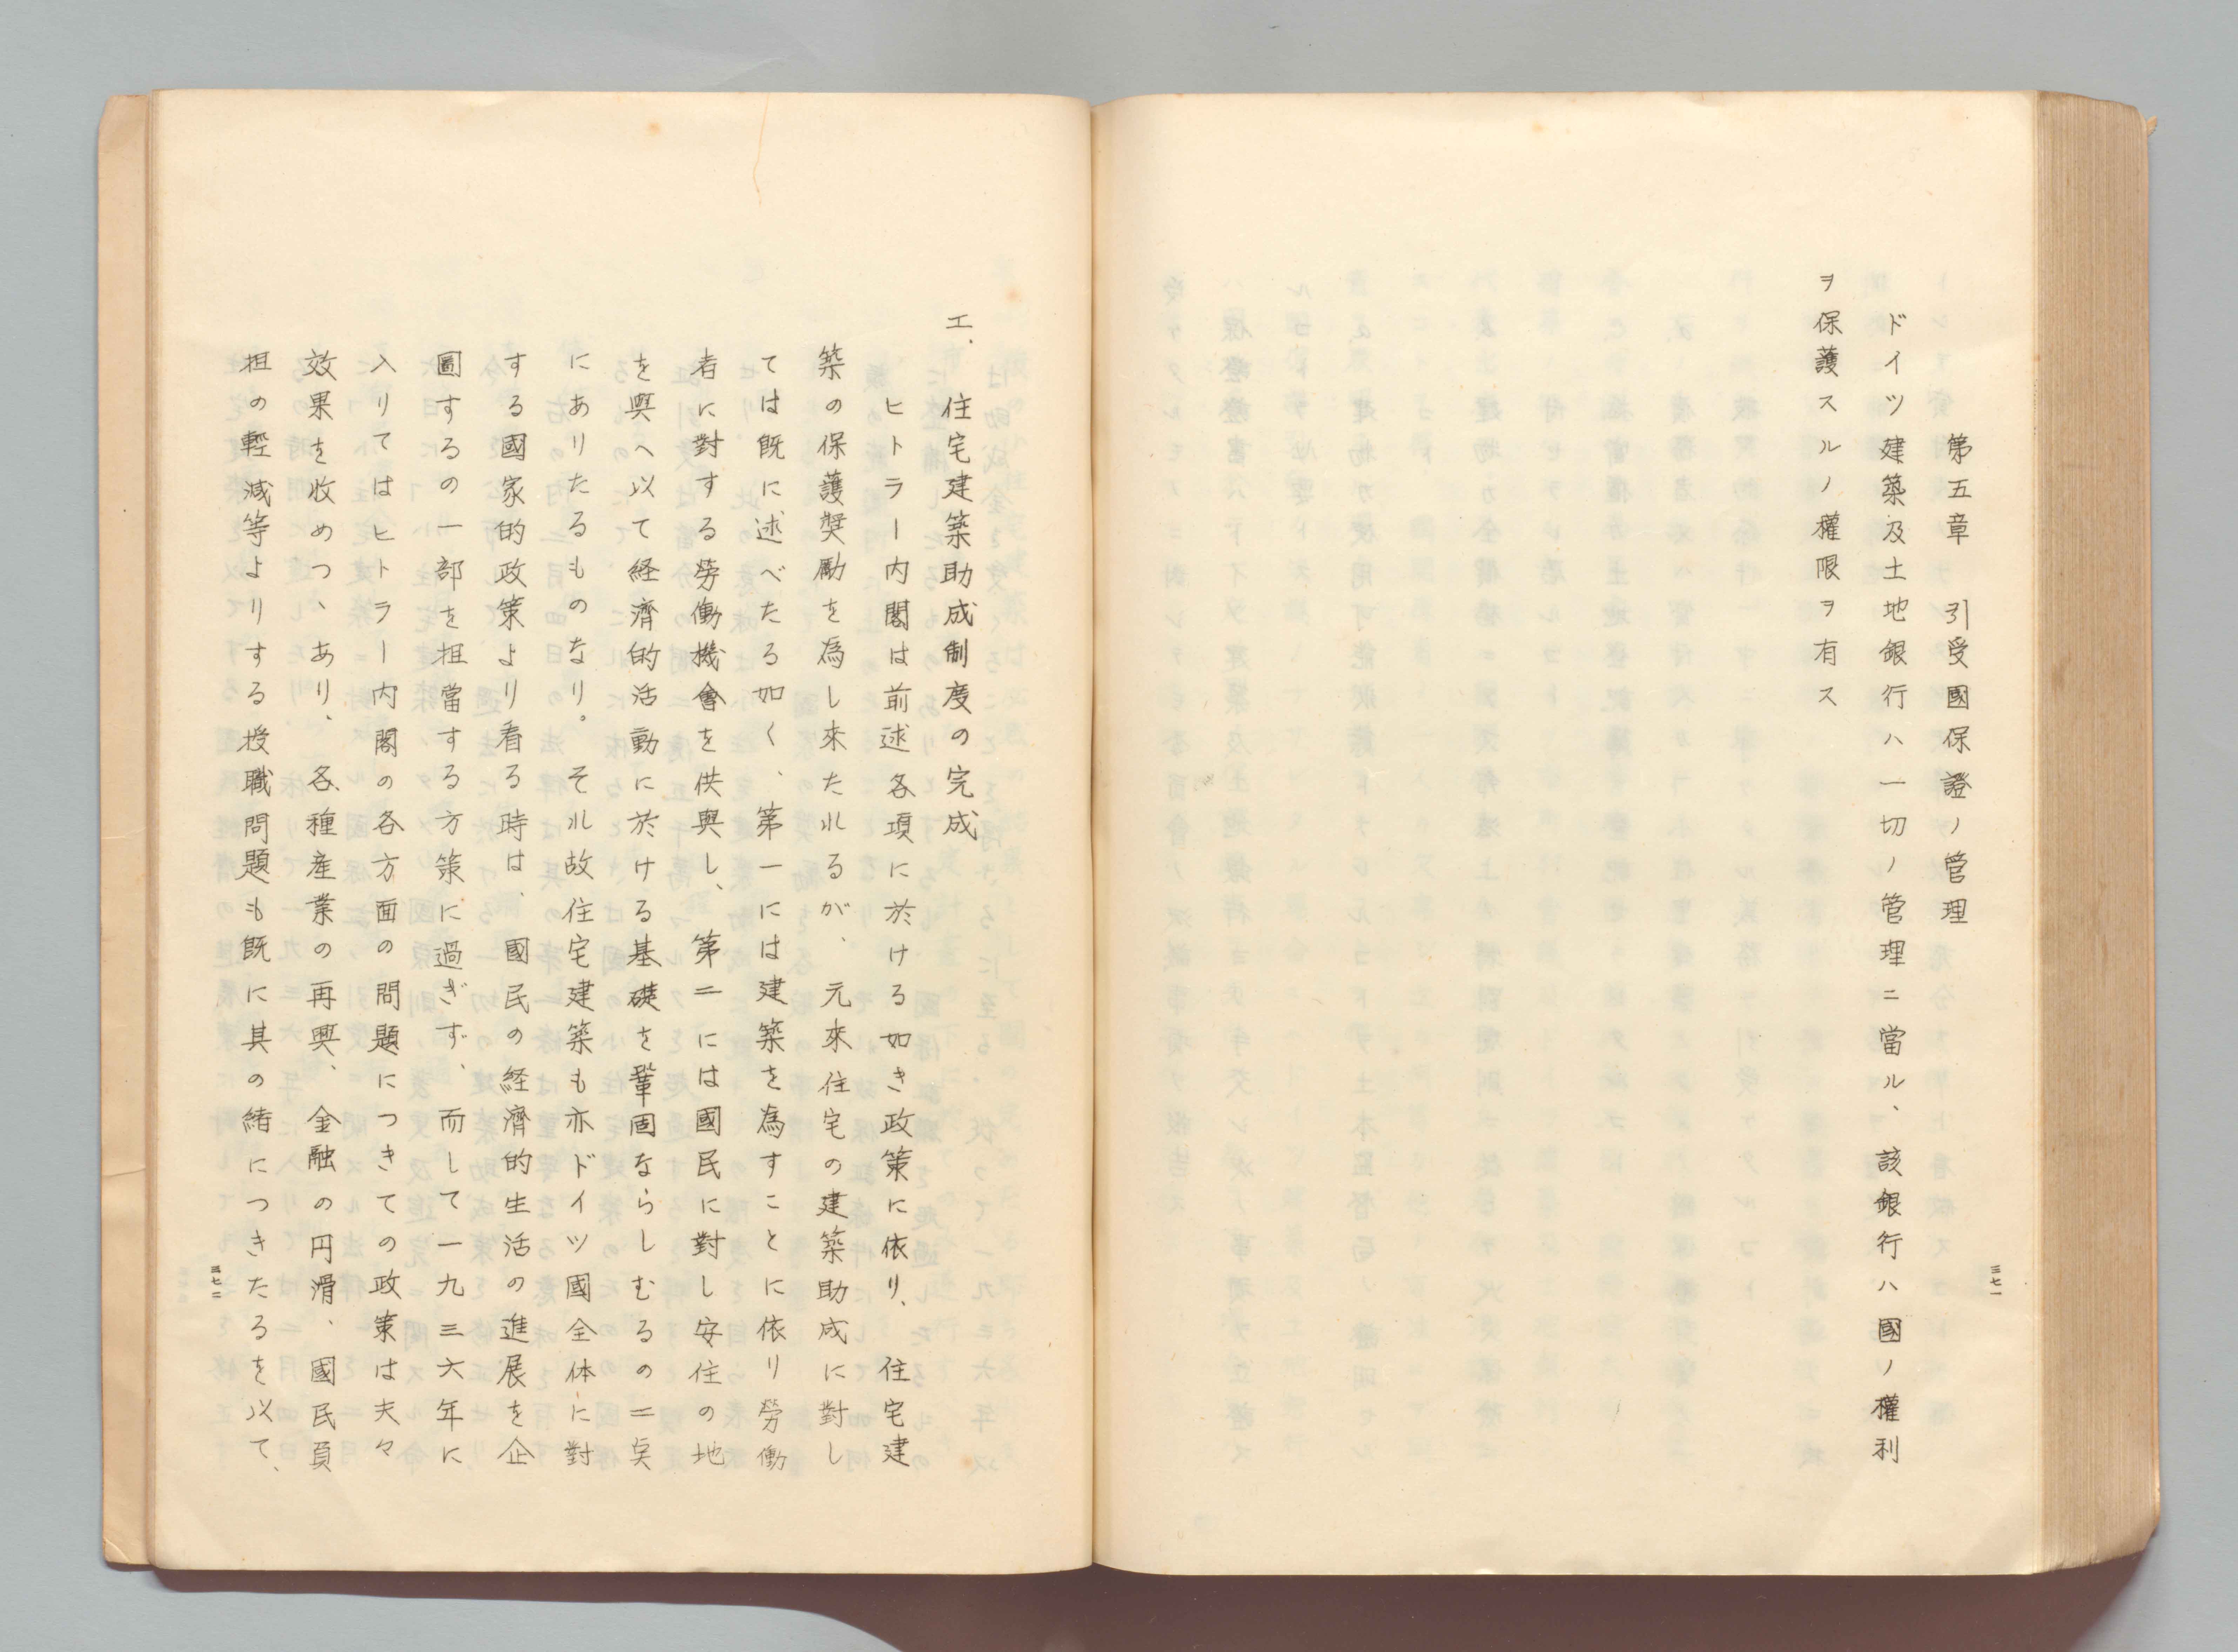 第五章　引受國保證ノ管理
ドイツ建築及土地銀行ハ一切ノ管理ニ當ル、該銀行ハ國ノ權利
ヲ保護スルノ權限ヲ有ス
三七一
エ、住宅建築助成制度の完成
ヒトラー内閣は前述各項に於ける如き政策に依り、住宅建
築の保護奬勵を為し來たれるが、元來住宅の建築助成に對し
ては既に述べたる如く、第一には建築を為すことに依り勞働
者に對する勞働機會を供與し、第二には國民に對し安住の地
を興へ以て経濟的活動に於ける基礎を鞏固ならしむるの二矣
にありたるものなり。それ故住宅建築も亦ドイツ國全体に對
する國家的政策より看る時は、國民の経濟的生活の進展を企
圖するの一部を担當する方策に過ぎず、而して一九三六年に
入りてはヒトラー内閣の各方面の問題につきての政策は夫々
效果を收めつゝあり、各種産業の再興、金融の円滑、國民負
担の輕減等よりする授職問題も既に其の緒につきたるを以て、
三七二